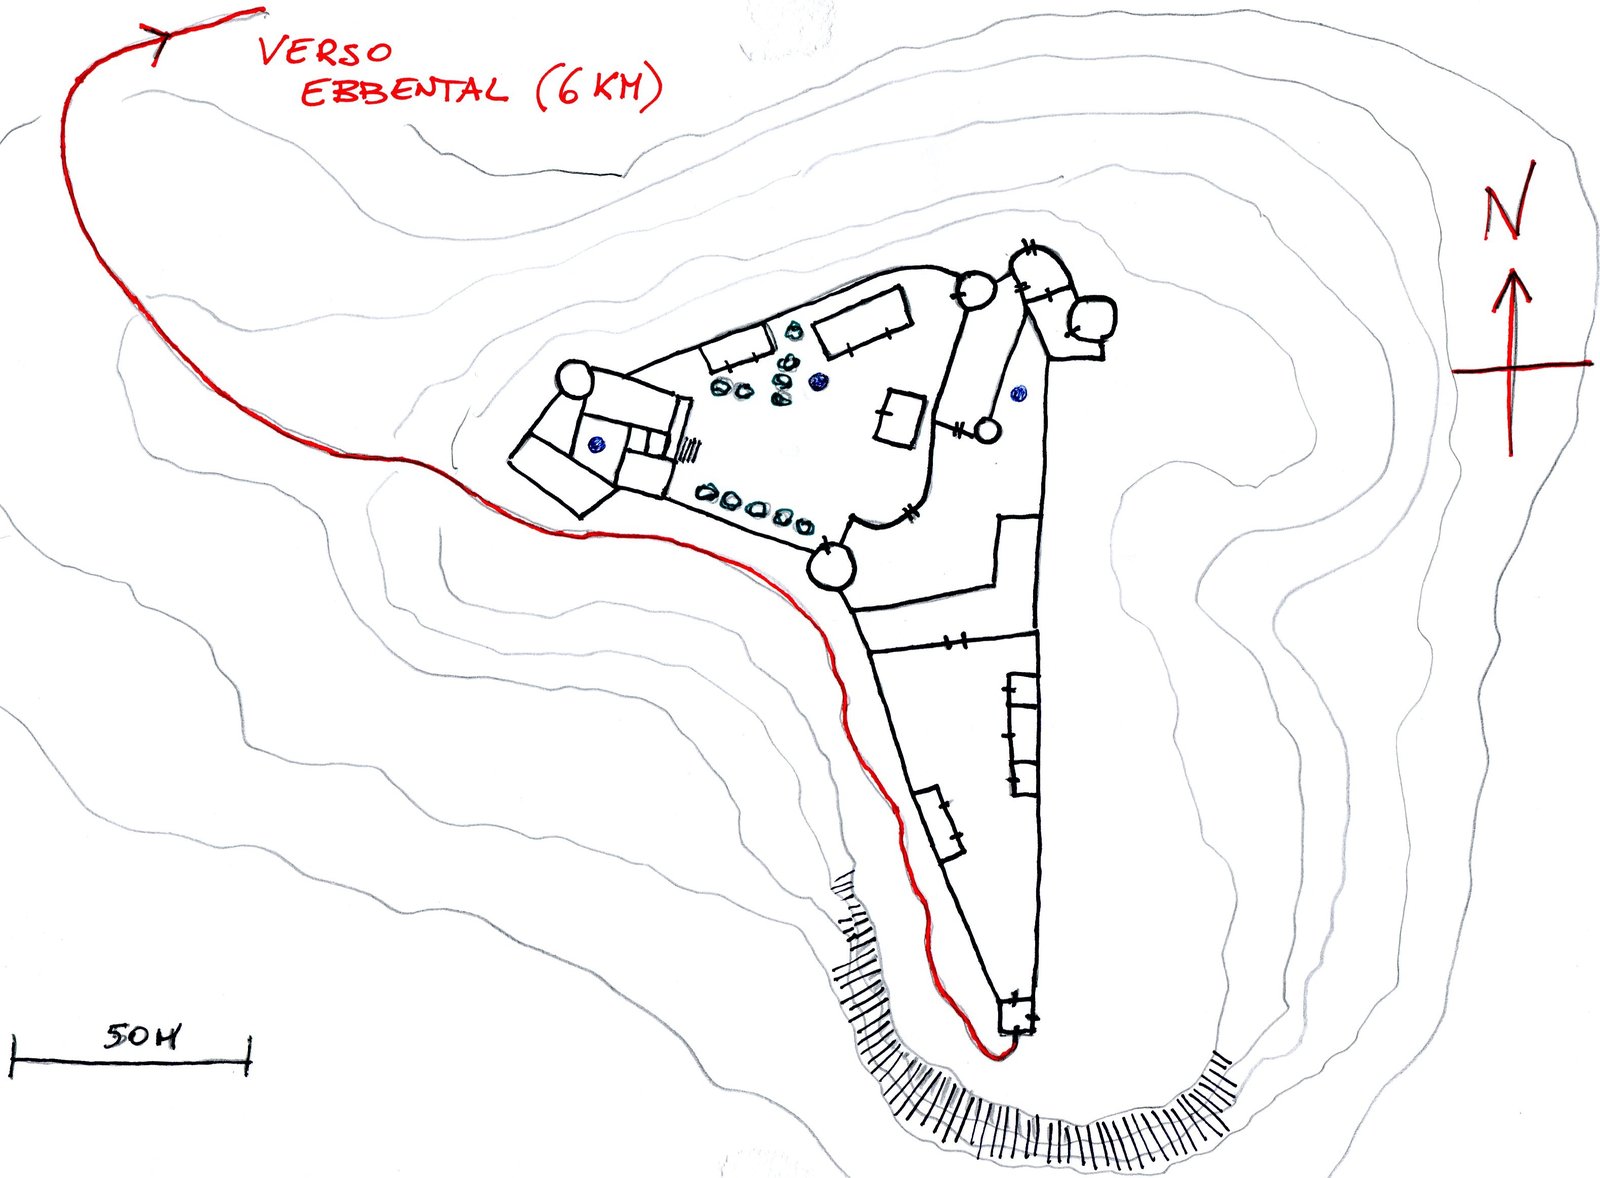 VERSO
EBBENTAL (6 KM)
N
50M